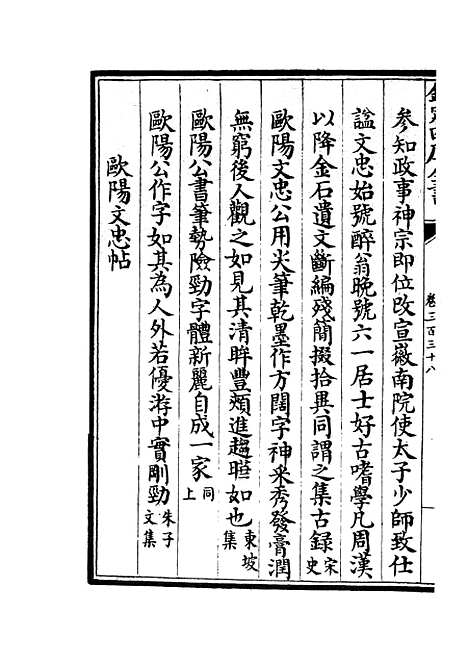 欽定四庫全書
卷二百三十八
參知政事神宗即位改宣徽南院使太子少師致仕
諡文忠始號醉翁晚號六一居士好古嗜學凡周漢
以降金石遺文斷編殘簡掇拾異同謂之集古録宋史
歐陽文忠公用尖筆乾墨作方闊字神采秀發膏潤
無窮後人觀之如見其清眸豐頰進趨曄如也東坡集
歐陽公書筆勢險勁字體新麗自成一家同上
歐陽公作字如其為人外若優游中實剛勁朱子文集
歐陽文忠帖